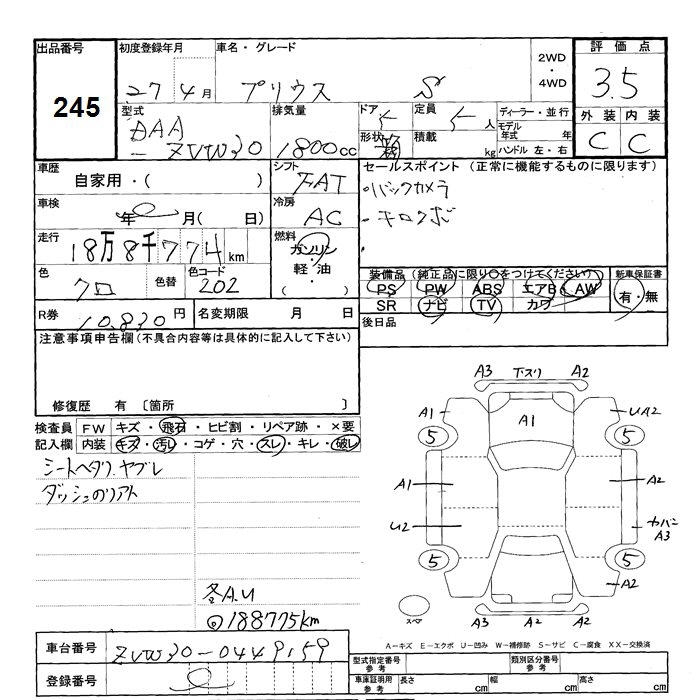 出品番号 初度登録年月 車名・グレード 2WD・4WD 評価点
245 27 4月 プリウス S 3.5
型式 排気量 ドア 定員 ディーラー・並行 外装 内装
DAA-ZVW30 1800cc 5 5人 モデル年式 年 C C
形状 積載 kg ハンドル 左・右
車歴 シフト セールスポイント (正常に機能するものに限ります)
自家用・( ) FAT ・バックカメラ
車検 冷房 ・キロクボ
年 月( 日) AC
走行 燃料
18万8千774km ガソリン・軽油・( )
装備品 (純正品に限り○をつけてください) 新車保証書
色 色替 色コード PS PW ABS エアB AW 有・無
クロ 202 SR ナビ TV カワ
R券 10.830円 名変期限 月 日 後日品
注意事項申告欄(不具合内容等は具体的に記入して下さい)
修復歴 有 〔箇所 〕
検査員記入欄 FW キズ・飛石・ヒビ割・リペア跡・×要
内装 キズ・汚レ・コゲ・穴・スレ・キレ・破レ
シートヘタリ.ヤブレ
ダッシュのリアト
冬A.U
◎188775km
A3 下スリ A2
A1 A1 UA2
5 5
A1 A2
U2 A3
5 5
A2
スペア A3 A2 A2
A-キズ E-エクボ U-凹み W-補修跡 S-サビ C-腐食 XX-交換済
車台番号 ZVW30-0449159
登録番号
型式指定番号 参考 類別区分番号 参考
車庫証明用 参考 長さ cm 幅 cm 高さ cm